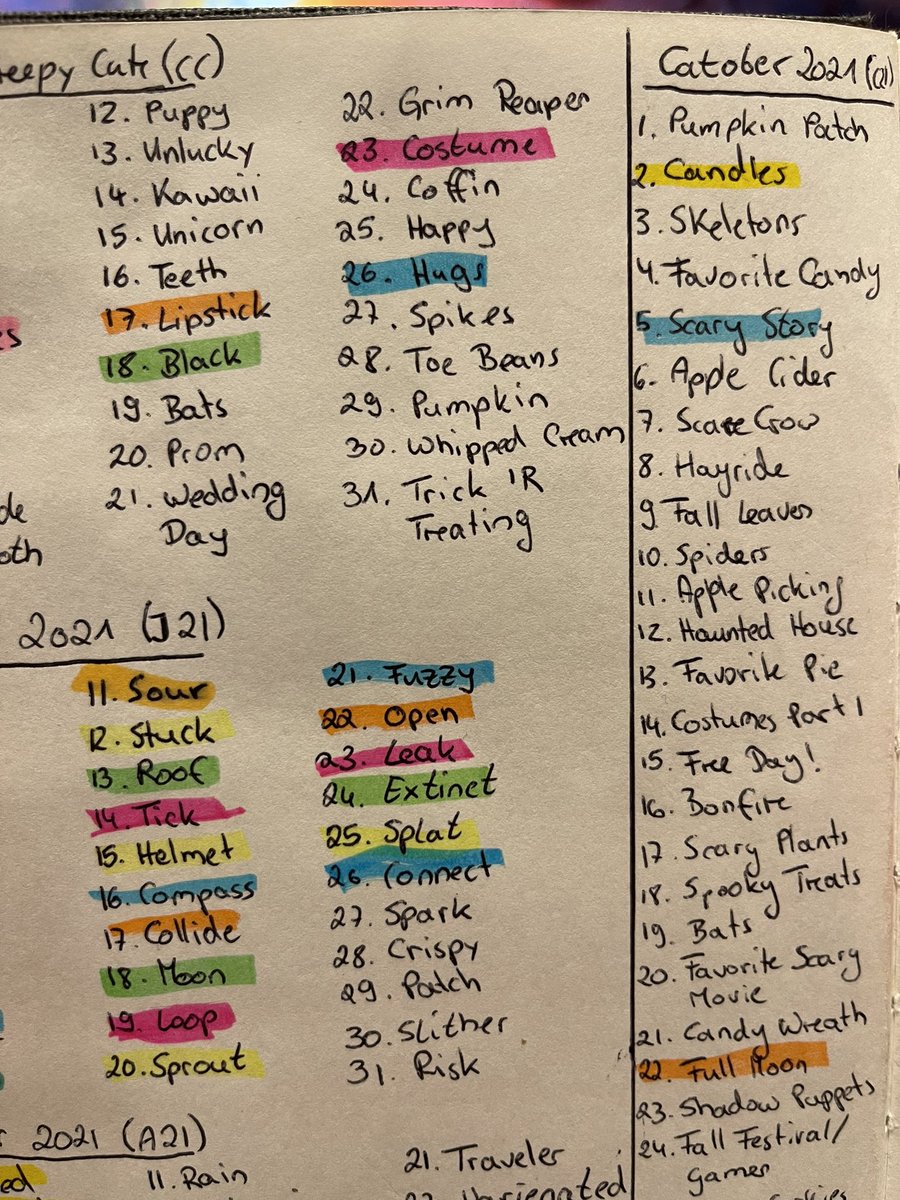 reepy Cute (CC)
12. Puppy
13. Unlucky
14. Kawaii
15. Unicorn
16. Teeth
17. Lipstick
18. Black
19. Bats
20. Prom
21. Wedding
Day
22. Grim Reaper
23. Costume
24. Coffin
25. Happy
26. Hugs
27. Spikes
28. Toe Beans
29. Pumpkin
30. Whipped Cream
31. Trick 'R
Treating
2021 (J21)
11. Sour
12. Stuck
13. Roof
14. Tick
15. Helmet
16. Compass
17. Collide
18. Moon
19. Loop
20. Sprout
21. Fuzzy
22. Open
23. Leak
24. Extinct
25. Splat
26. Connect
27. Spark
28. Crispy
29. Patch
30. Slither
31. Risk
2021 (A21)
11. Rain
21. Traveler
Catober 2021
1. Pumpkin Patch
2. Candles
3. Skeletons
4. Favorite Candy
5. Scary Story
6. Apple Cider
7. ScareCrow
8. Hayride
9. Fall Leaves
10. Spiders
11. Apple Picking
12. Haunted House
13. Favorite Pie
14. Costumes Part 1
15. Free Day!
16. Bonfire
17. Scary Plants
18. Spooky Treats
19. Bats
20. Favorite Scary
Movie
21. Candy Wreath
22. Full Moon
23. Shadow Puppets
24. Fall Festival/
Games